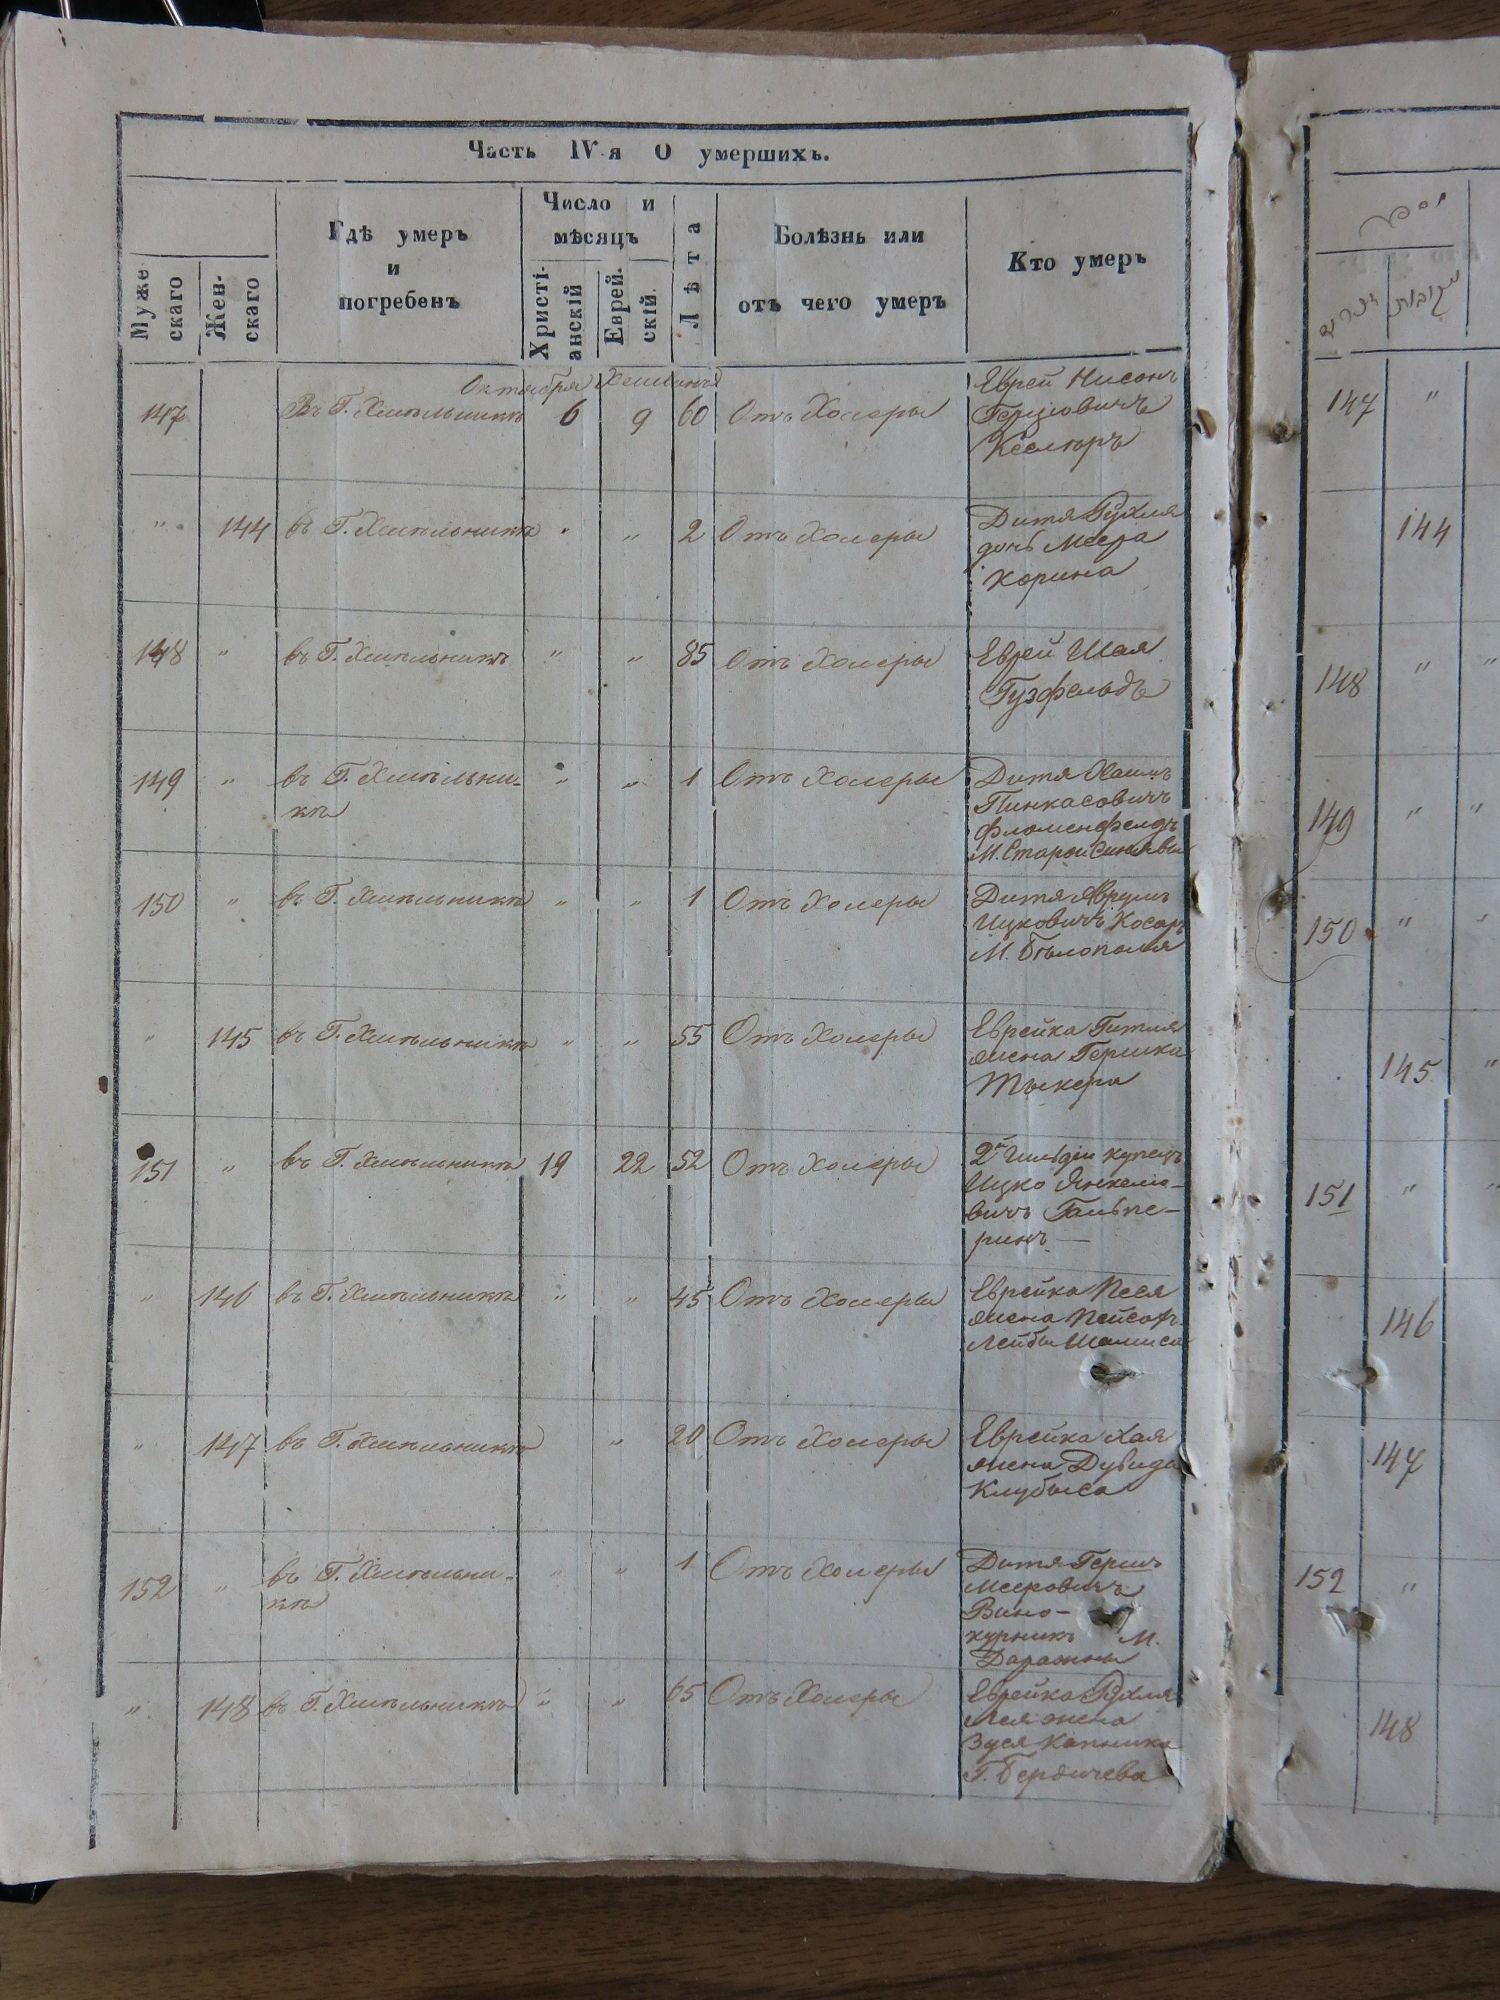 Часть IV-я О умершихъ.
Муже скаго
Жен- скаго
Гдѣ умеръ
и
погребенъ
Число и
мѣсяцъ
Христі- анскій
Еврей- скій.
Лѣта
Болѣзнь или
отъ чего умеръ
Кто умеръ
Октября
147 Въ Г. Хмѣльникѣ 6 9 60 Отъ Холеры Еврей Нисонъ
Герцковичъ
" 144 въ Г. Хмѣльникѣ " " 2 Отъ Холеры Дитя Рухля
дочь Меера
Корина
148 " въ Г. Хмѣльникѣ " " 85 Отъ Холеры Еврей Шая
Гузфельдъ
149 " въ Г. Хмѣльни- " " 1 Отъ Холеры Дитя Хаимъ
кѣ Пинкасовичъ
Фломенфелдъ
М. Старой Синявы
150 " въ Г. Хмѣльникѣ " " 1 Отъ Холеры Дитя Аврумъ
Ицковичъ Косаръ
М. Бѣлополя
" 145 въ Г. Хмѣльникѣ " " 55 Отъ Холеры Еврейка Гитля
жена Гершка
Тыкера
151 " въ Г. Хмѣльникѣ 19 22 52 Отъ Холеры 2й Гильдіи купецъ
Ицко Янкеліо-
вичъ Гальпе-
ринъ
" 146 въ Г. Хмѣльникѣ " " 45 Отъ Холеры Еврейка Песя
жена
Лейбы
" 147 въ Г. Хмѣльникѣ " 20 Отъ Холеры Еврейка Хая
жена Дувида
Клубыса
152 " въ Г. Хмѣльни- " " 1 Отъ Холеры Дитя Гершъ
кѣ Мееровичъ
Вино-
курникъ М.
Даражны
" 148 въ Г. Хмѣльникѣ " " 65 Отъ Холеры Еврейка Рухля
Лея жена
Зуся Капника
Г. Бердичева
147 "
144
148 " "
149 " "
150 " "
145 "
151 " "
146
147
152 "
148